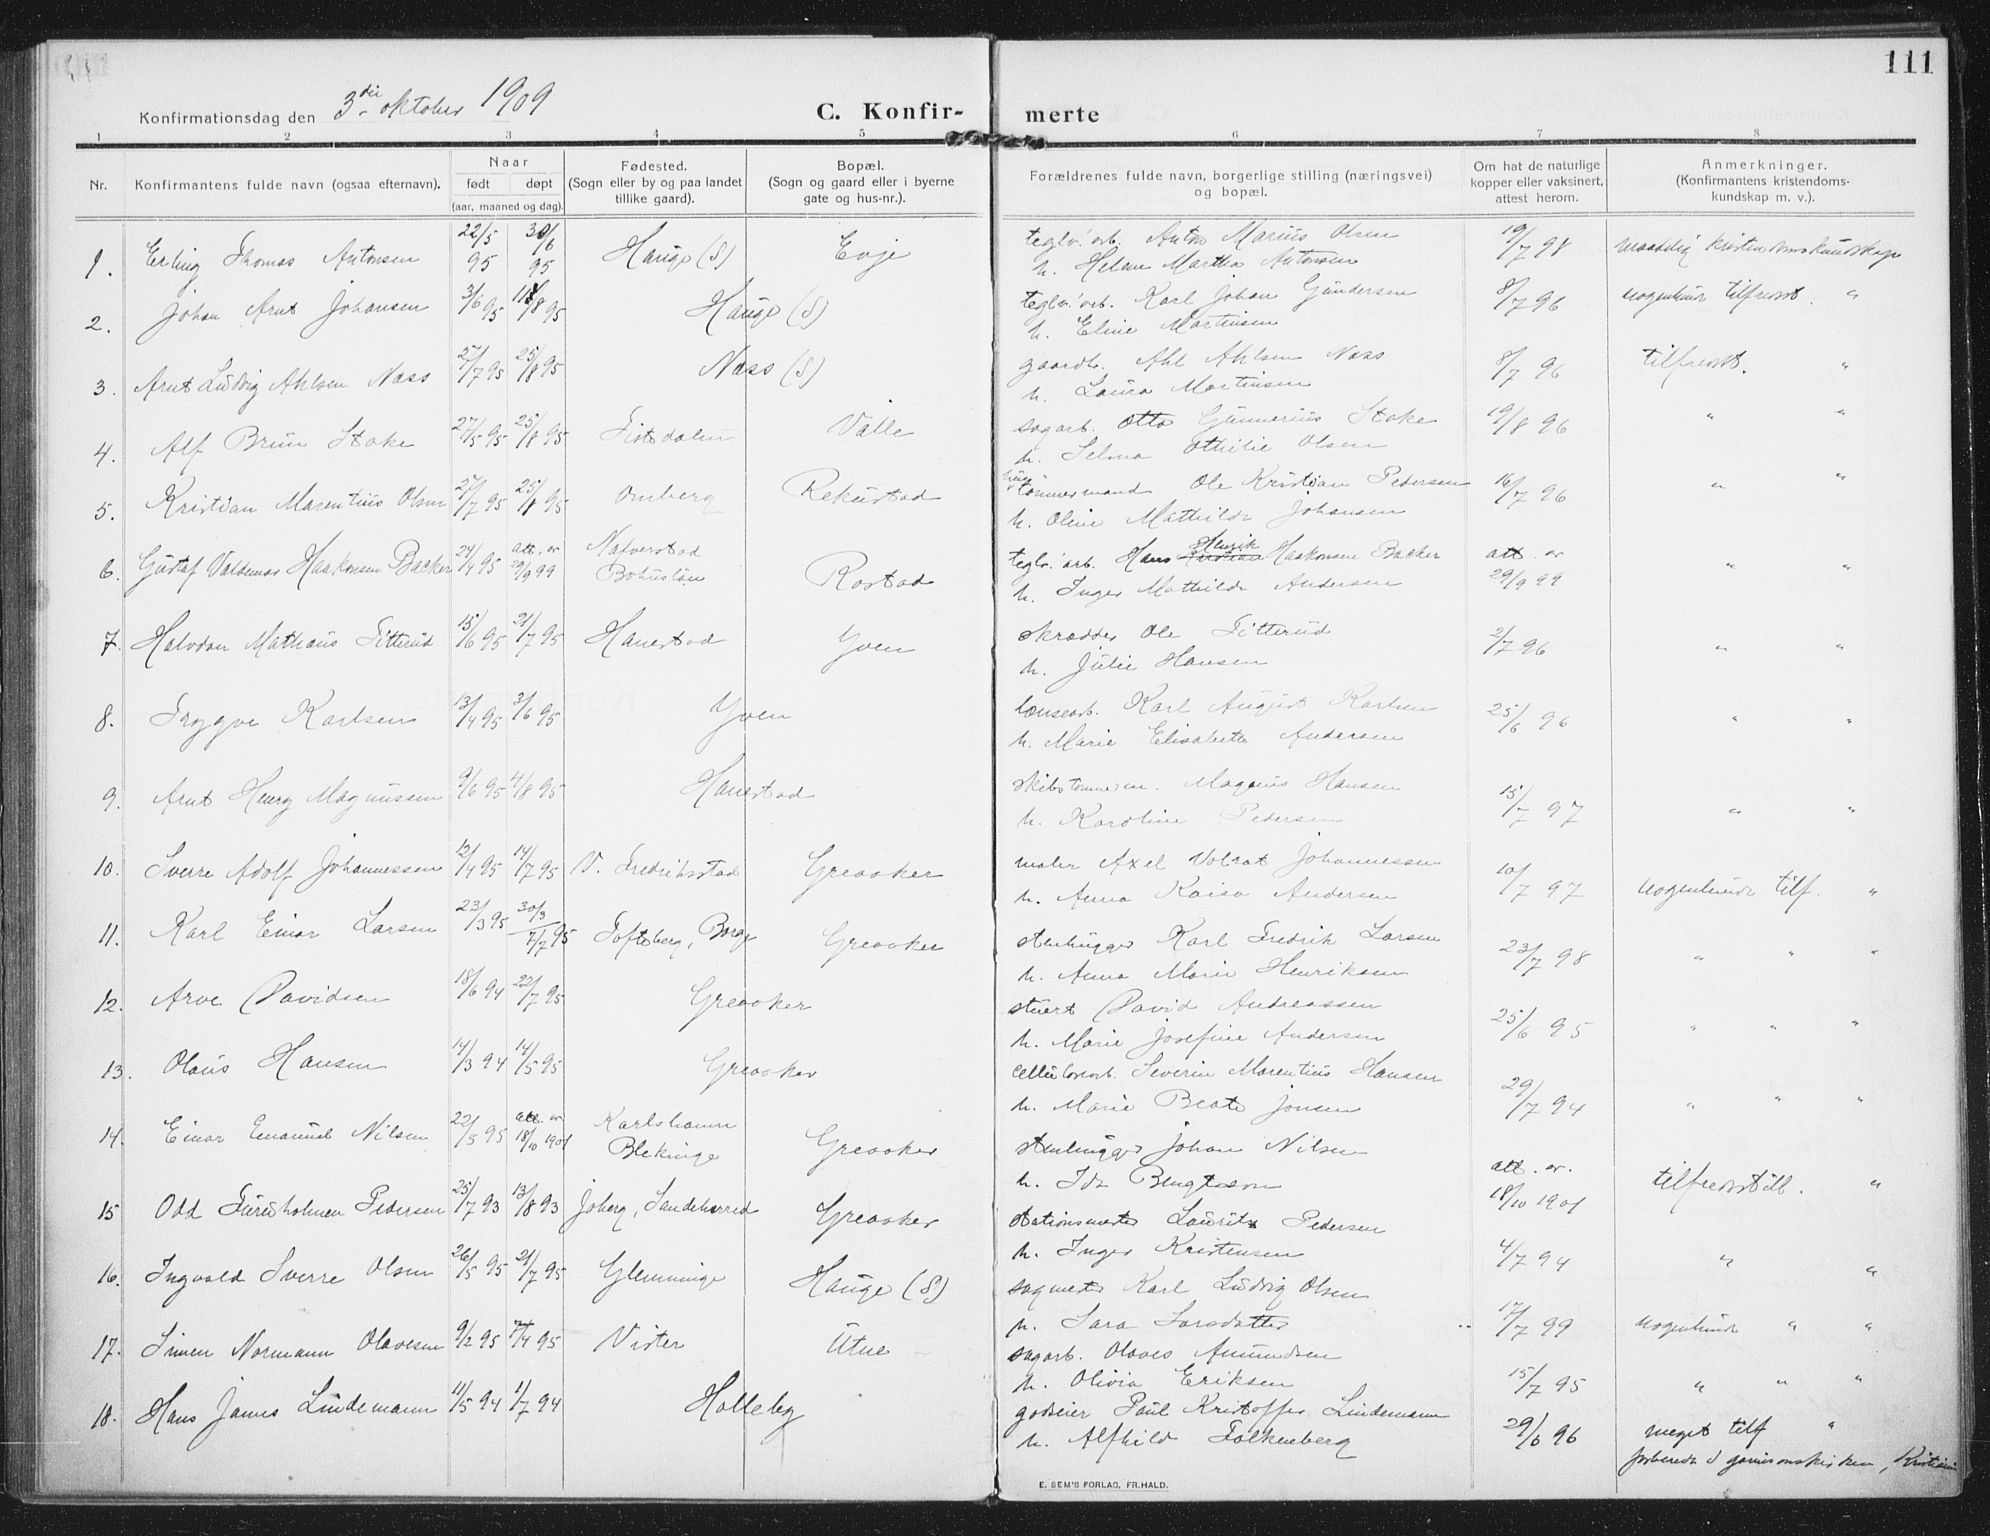 111
Konfirmationsdag den 3die oktober 1909
C. Konfir- merte
1 2 3 4 5 6 7 8
Nr.
Konfirmantens fulde navn (ogsaa efternavn).
Naar
født døpt
(aar, maaned og dag).
Fødested.
(Sogn eller by og paa landet
tillike gaard).
Bopæl.
(Sogn og gaard eller i byerne
gate og hus-nr.).
Forældrenes fulde navn, borgerlige stilling (næringsvei)
og bopæl.
Om hat de naturlige
kopper eller vaksinert,
attest herom.
Anmerkninger.
(Konfirmantens kristendoms-
kundskap m. v.).
1. Erling Thomas Antonsen 22/5 95 30/6 95 Hauge (S) Evje teglv.arb. Anton Marius Olsen 19/7 98 maadelig kristendomskundskap
h. Helene Martha Antonsen
2. Johan Arnt Johansen 3/6 95 11/8 95 Hauge (S) teglv.arb. Karl Johan Gundersen 8/7 96 nogenlunde tilfredsst. "
h. Eline Martinsen
3. Arnt Ludvig Ahlsen Næss 27/7 95 25/8 95 Næss (S) gaardb. Ahl Ahlsen Næss 8/7 96 tilfredsst. "
h. Laura Martinsen
4. Alf Brun Stake 27/5 95 25/8 95 Tistedalen Valle sagarb. Otto Gunnerius Stake 19/8 96 " "
h. Selma Othilie Olsen
5. Kristian Marentius Olsen 27/7 95 25/8 95 Omberg Rekustad hustømmermand Ole Kristian Pedersen 16/7 96 " "
h. Oline Mathilde Johansen
6. Gustaf Valdemar Haakonsen Backer 24/4 95 att. av 29/9 99 Nafverstad Bohuslän Rostad teglv.arb. Hans Henrik Haakonsen Backer att. av 29/9 99 " "
h. Inger Mathilde Andersen
7. Halvdan Mathæus Titterud 15/6 95 21/7 95 Hanestad Yven skrædder Ole Titterud 2/7 96 " "
h. Julie Hansen
8. Trygve Karlsen 13/4 95 3/6 95 Yven lensearb. Karl August Karlsen 25/6 96 " "
h. Marie Elisabeth Andersen
9. Arnt Henry Magnussen 9/6 95 4/8 95 Hanestad skibstømmerm. Magnus Hansen 15/7 97 " "
h. Karoline Pedersen
10. Sverre Adolf Johannessen 12/4 95 14/7 95 V. Fredrikstad Greaaker maler Axel Volrat Johannessen 10/7 97 nogenlunde tilf. "
h. Anna Kaisa Andersen
11. Karl Einar Larsen 23/3 95 30/3 7/7 95 Toftsberg, Borge Greaaker stenhugger Karl Fredrik Larsen 23/7 98 " " "
h. Anna Marie Henriksen
12. Arve Davidsen 18/6 94 22/7 95 Greaaker stuert David Andreassen 25/6 95 " " "
h. Marie Josefine Andersen
13. Olaus Hansen 14/3 94 14/5 95 Greaaker cellulosearb. Severin Marentius Hansen 29/7 94 " " "
h. Marie Beate Jonsen
14. Einar Emanuel Nilsen 22/5 95 att. av 18/10 1901 Karlshamn Blekinge Greaaker stenhugger Johan Nilsen att. av. 18/10 1901 tilfredsstill. "
h. Ida Bengtsson
15 Odd Furuholmen Pedersen 25/7 93 13/8 93 Joberg, Sandeherred Greaaker stationsmester Lauritz Pedersen 4/7 94 " "
h. Inger Kristensen
16. Ingvald Sverre Olsen 26/5 95 21/7 95 Glemminge Hauge (S) sagmester Karl Ludvig Olsen 17/7 99 nogenlunde " "
h. Sara Larsdatter
17. Simen Normann Olavesen 9/2 95 7/4 95 Vister Utne sagarb. Olaves Amundsen 15/7 95 " " "
h. Olivia Eriksen
18. Hans James Lindemann 11/5 94 1/7 94 Holleby godseier Paul Kristoffer Lindemann 29/6 96 meget tilf "
h. Alfhild Falkenberg forberedt i garnisonskirken, Kristiania
E. SEM'S FORLAG, FR.HALD.